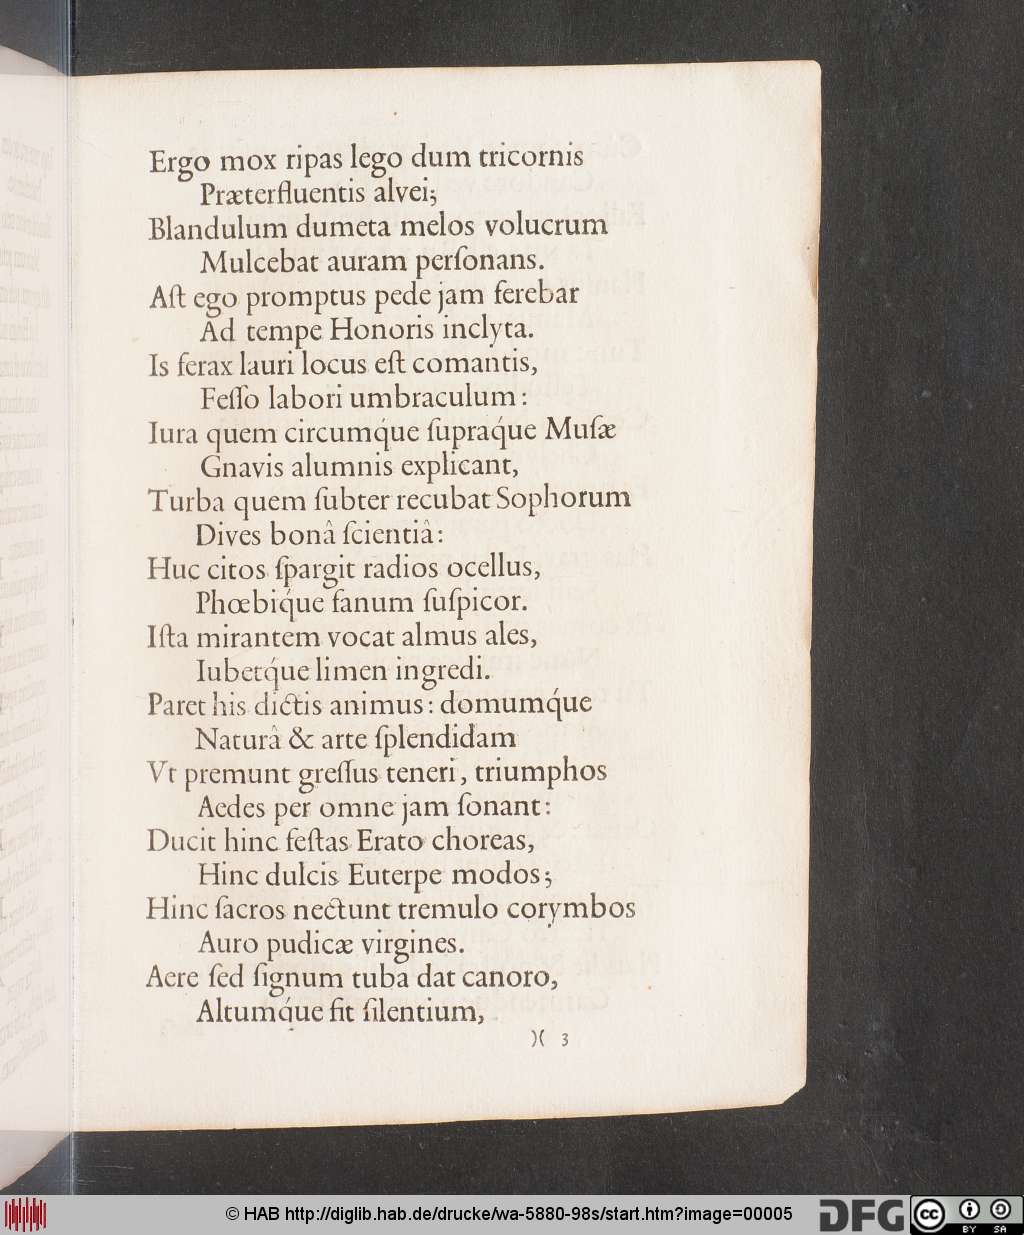 Ergo mox ripas lego dum tricornis
Præterfluentis alvei;
Blandulum dumeta melos volucrum
Mulcebat auram perſonans.
Aſt ego promptus pede jam ferebar
Ad tempe Honoris inclyta.
Is ferax lauri locus eſt comantis,
Feſſo labori umbraculum:
Iura quem circumq́ue ſupraq́ue Muſæ
Gnavis alumnis explicant,
Turba quem ſubter recubat Sophorum
Dives bonâ ſcientiâ:
Huc citos ſpargit radios ocellus,
Phœbiq́ue fanum ſuſpicor.
Iſta mirantem vocat almus ales,
Iubetq́ue limen ingredi.
Paret his dictis animus: domumq́ue
Naturâ & arte ſplendidam
Vt premunt greſſus teneri, triumphos
Aedes per omne jam ſonant:
Ducit hinc feſtas Erato choreas,
Hinc dulcis Euterpe modos;
Hinc ſacros nectunt tremulo corymbos
Auro pudicæ virgines.
Aere ſed ſignum tuba dat canoro,
Altumq́ue fit ſilentium,
)( 3
© HAB http://diglib.hab.de/drucke/wa-5880-98s/start.htm?image=00005
DFG
cc BY SA